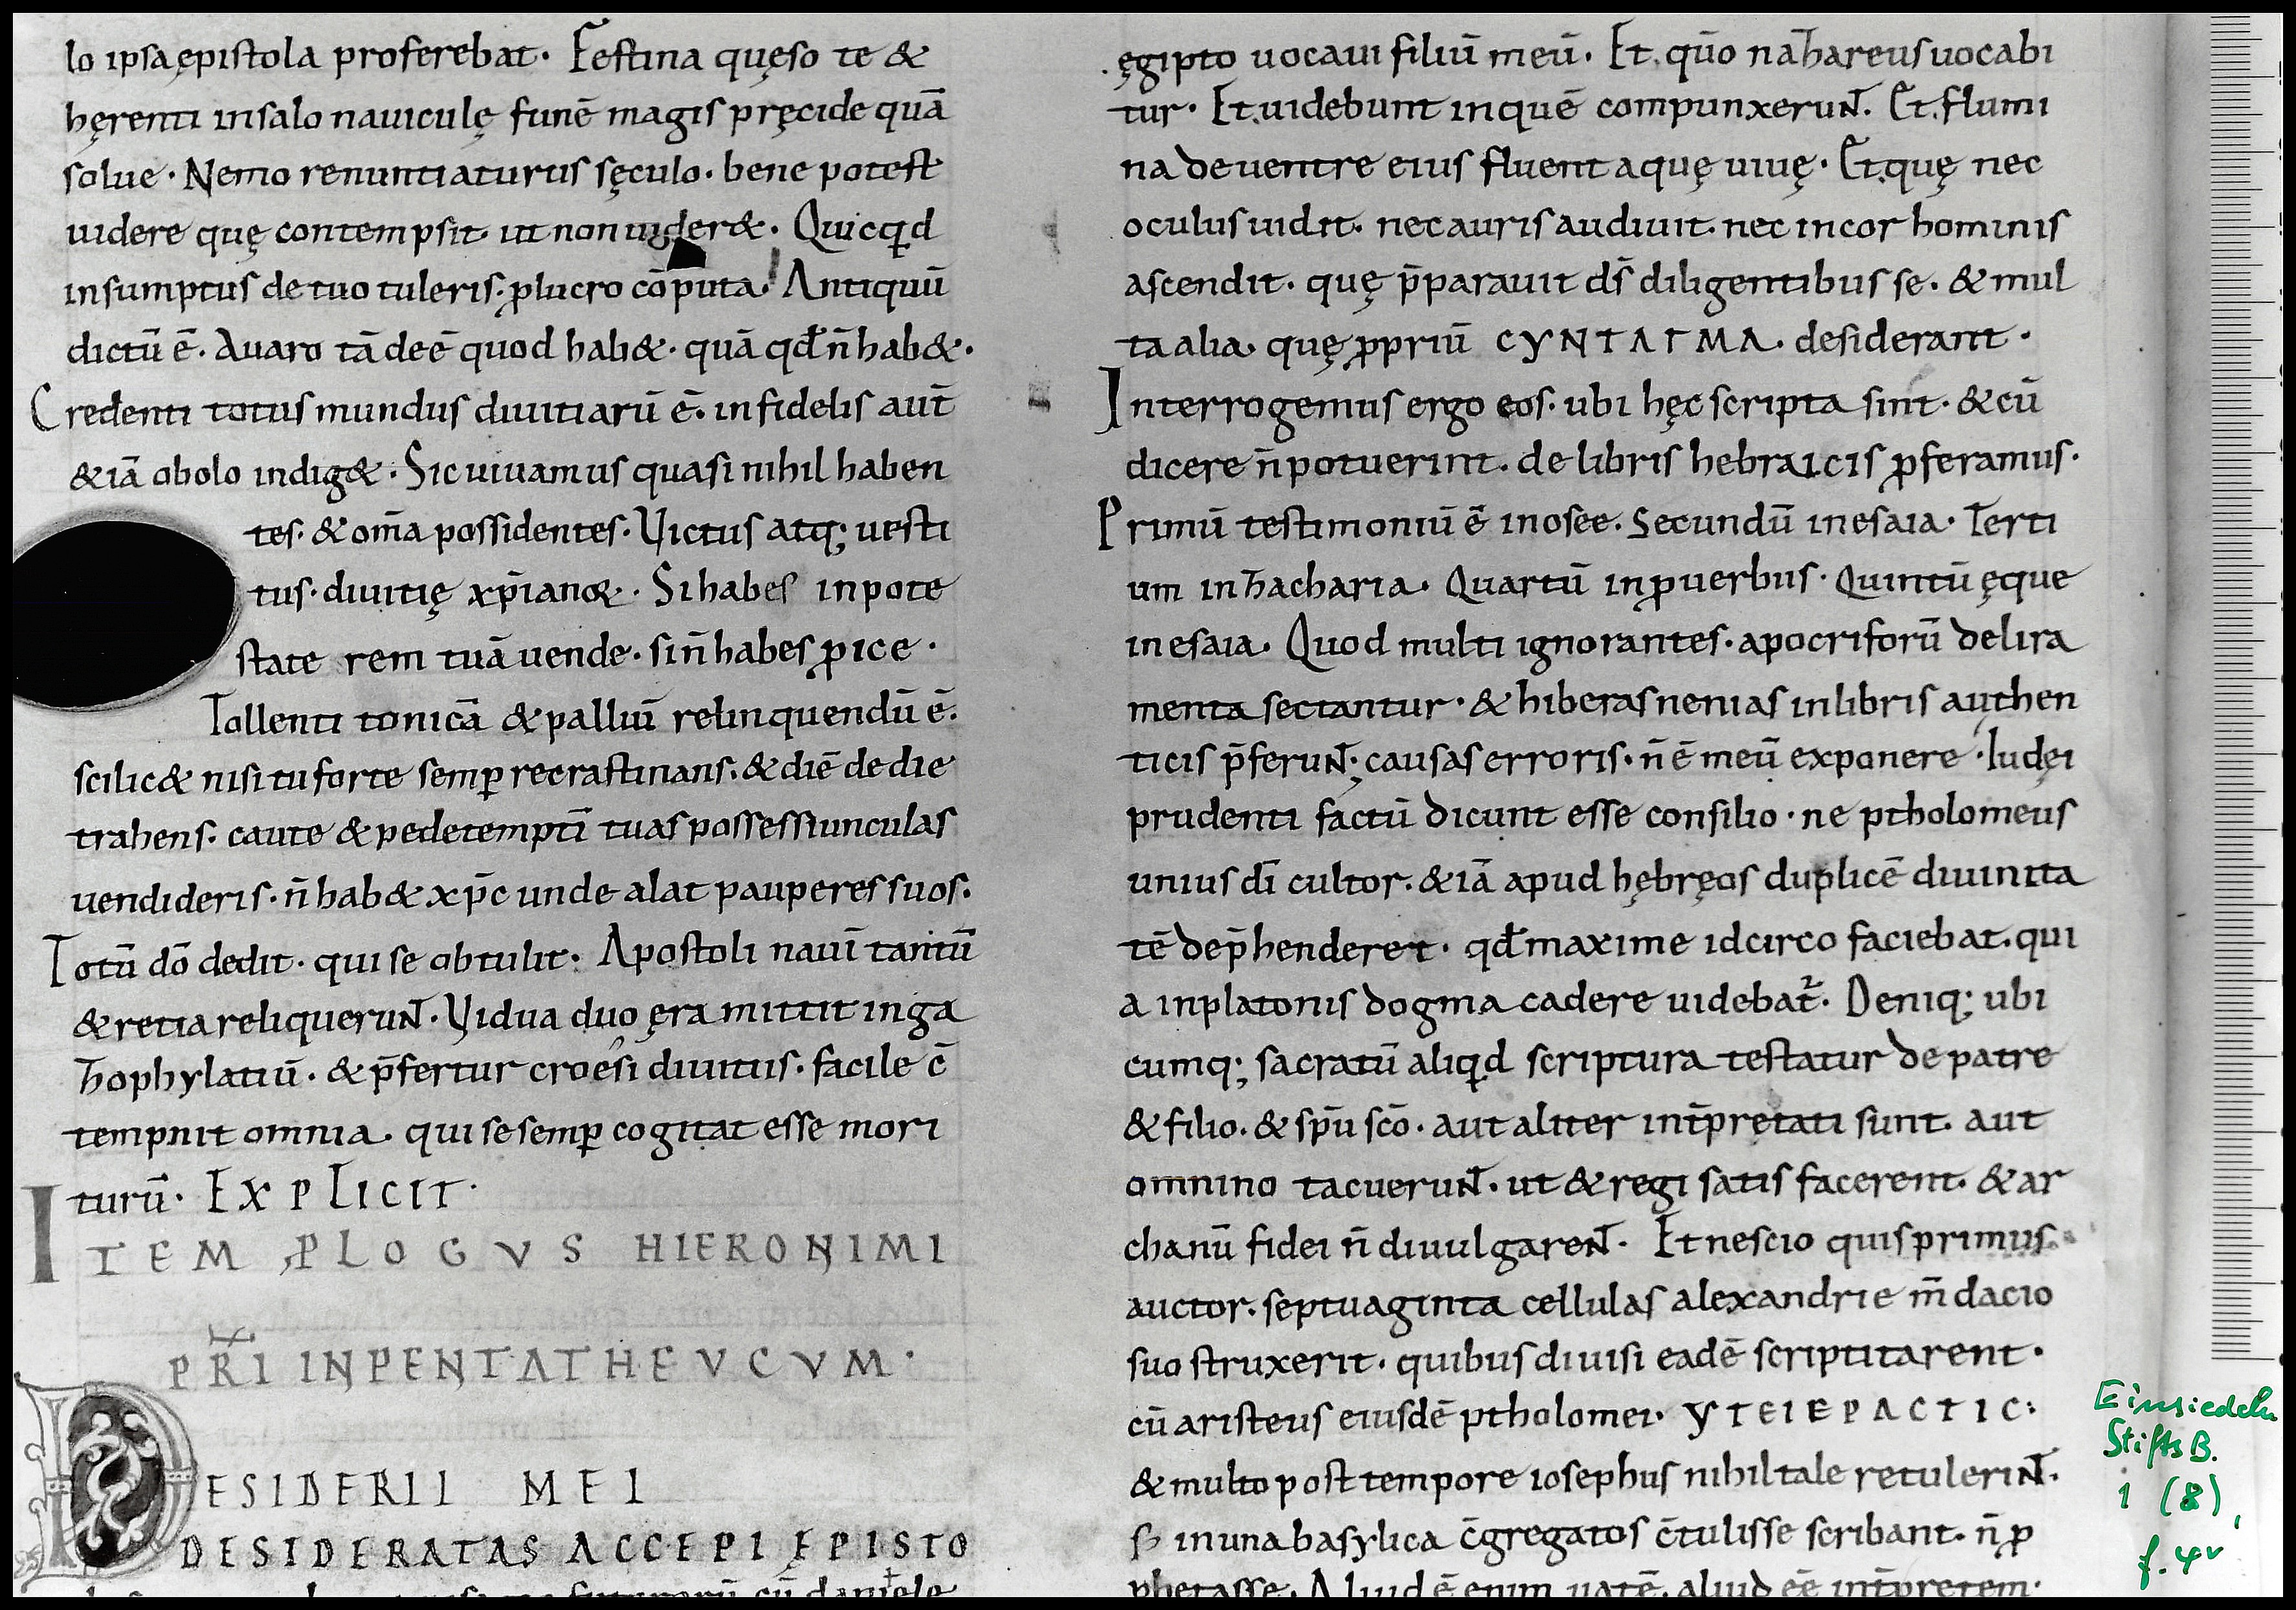 lo ipsa ępistola proferebat· Festina quęso te &
hęrenti in salo nauiculę funē magis pręcide quā
solue· Nemo renuntiaturus sęculo· bene potest
uidere quę contempsit ut non uider&· Quicqd
in sumptus de tuo tuleris· ꝓ lucro cōputa· Antiquū
dictū ē· Auaro tā deē quod hab&· quā qđ n̄ hab&·
Credenti totus mundus diuitiarū ē· infidelis aut̄
& iā obolo indig&· Sic uiuamus quasi nihil haben
tes· & om̄a possidentes· Victus atq; uesti
tus· diuitię xp̄ianoꝝ· Si habes in pote
state rem tuā uende· si n̄ habes ꝓice·
Tollenti tonicā & palliū relinquendū ē·
scilic& nisi tu forte semꝑ recrastinans· & diē de die
trahens· caute & pedetemptī tuas possessiunculas
uendideris· n̄ hab& xp̄c unde alat pauperes suos·
Totū dō dedit· qui se obtulit· Apostoli nauī tantū
& retia reliqueruNT· Vidua duo ęra mittit in ga
zophylatiū· & p̄fertur croesi diuitiis· facile c̄
tempnit omnia· qui se semꝑ cogitat esse mori
turū· EXPLICIT·
ITEM PLOGVS HIERONIMI
PRĪ IN PENTATHEVCVM·
DESIDERII MEI
DESIDERATAS ACCEPI ĘPISTO
ęgipto uocaui filiū meū· Et· qūo nazareus uocabi
tur· Et· uidebunt in quē compunxeruNT· Et· flumi
na de uentre eius fluent aquę uiuę· Et· quę nec
oculus uidit· nec auris audiuit· nec in cor hominis
ascendit· quę p̄parauit ds̄ diligentibus se· & mul
ta alia· quę ꝓpriū CYNTAΓMA· desiderant·
Interrogemus ergo eos· ubi hęc scripta sint· & cū
dicere n̄ potuerint· de libris hebraicis ꝓferamus·
Primū testimoniū ē in osee· Secundū in esaia· Terti
um in zacharia· Quartū in ꝓuerbiis· Quintū ęque
in esaia· Quod multi ignorantes· apocriforū delira
menta sectantur· & hiberas nenias in libris authen
ticis p̄feruNT; causas erroris· n̄ ē meū exponere· Iudęi
prudenti factū dicunt esse consilio· ne ptholomeus
unius dī cultor· & iā apud hębręos duplicē diuinita
tē dep̄henderet· qđ maxime idcirco faciebat· qui
a in platonis dogma cadere uidebat᷑· Deniq; ubi
cumq; sacratū aliqd scriptura testatur de patre
& filio· & sp̄u scō· aut aliter int̄pretati sunt· aut
omnino tacueruNT· ut & regi satis facerent· & ar
chanū fidei n̄ diuulgareNT· Et nescio quis primus
auctor· septuaginta cellulas alexandrie m̄dacio
suo struxerit· quibus diuisi eadē scriptitarent·
cū aristeus eiusdē ptholomei· YΤEIEPACTIC·
& multo post tempore iosephus nihil tale retuleriNT·
s; in una basylica c̄gregatos c̄tulisse scribant· n̄ ꝓ
phetasse· Aliud ē enim uatē· aliud eē int̄pretem·
Einsiedeln
StiftsB.
1 (8),
f. 4v